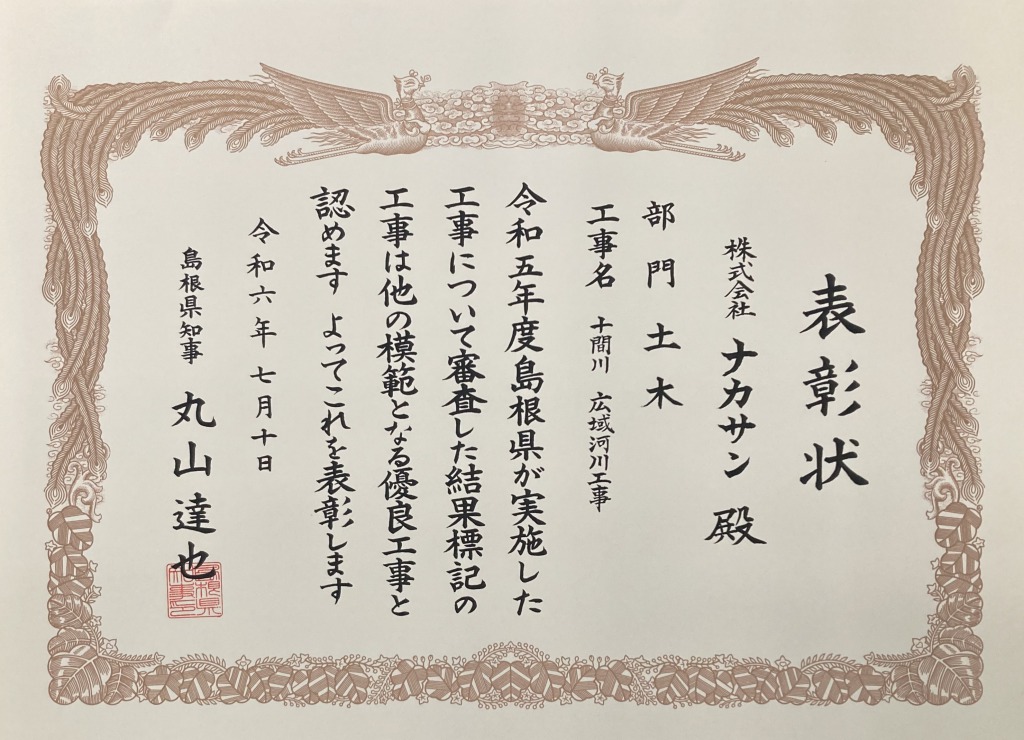 表彰状
株式会社 ナカサン 殿
部門 土木
工事名 十間川 広域河川工事
令和五年度島根県が実施した
工事について審査した結果標記の
工事は他の模範となる優良工事と
認めます よってこれを表彰します
令和六年七月十日
島根県知事 丸山達也
島根県知事印